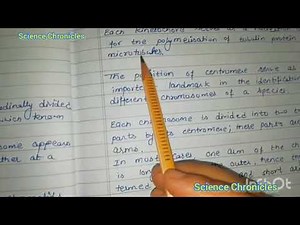 Science Chronicles
Each kinetochore
for the polymerisation of tubulin protein
microtubules.
The position of centromere serve as
important landmark in the identification
different chromosomes of a species.
Each chromosome is divided into two
parts by its centromere, these parts are
arms.
In most cases one arm of the ch
is long
hence
termed
dinally divided
which remain
some appears
gether at a
Science Chronicles